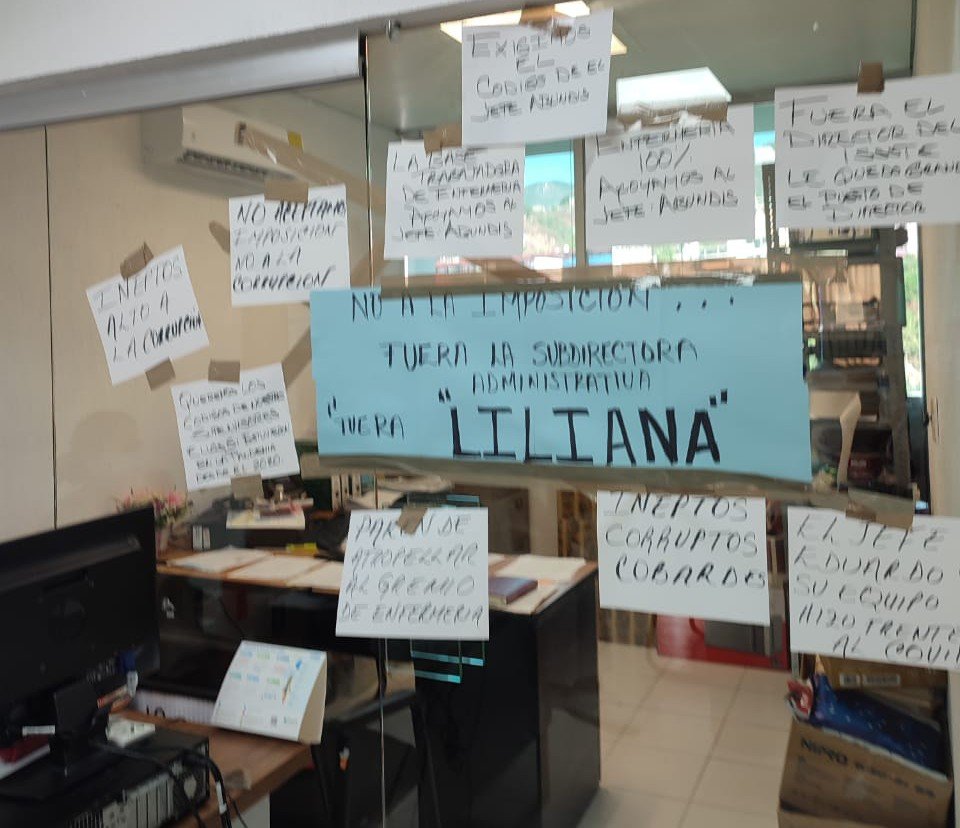 EXIGIMOS
EL
CODIGO DE EL
JEFE ABUNDIS
LA BASE
TRABAJADORA
DE ENFERMERIA
APOYAMOS AL
JEFE ABUNDIS
ENFERMERIA
100%
APOYAMOS AL
JEFE ABUNDIS
FUERA EL
DIRECTOR DEL
ISSSTE
LE QUEDA GRANDE
EL PUESTO DE
DIRECTOR
NO ACEPTAMOS
IMPOSICION
NO A LA
CORRUPCION
INEPTOS
ALTO A
LA CORRUPCION
NO A LA IMPOSICIÓN . . .
FUERA LA SUBDIRECTORA
ADMINISTRATIVA
"FUERA "LILIANA"
QUEREMOS LOS
CODIGOS DE NUESTROS
EN LA PANDEMIA
PAREN DE
ATROPELLAR
AL GREMIO
DE ENFERMERIA
INEPTOS
CORRUPTOS
COBARDES
EL JEFE
EDUARDO
SU EQUIPO
HIZO FRENTE
AL COVI
NIPRO